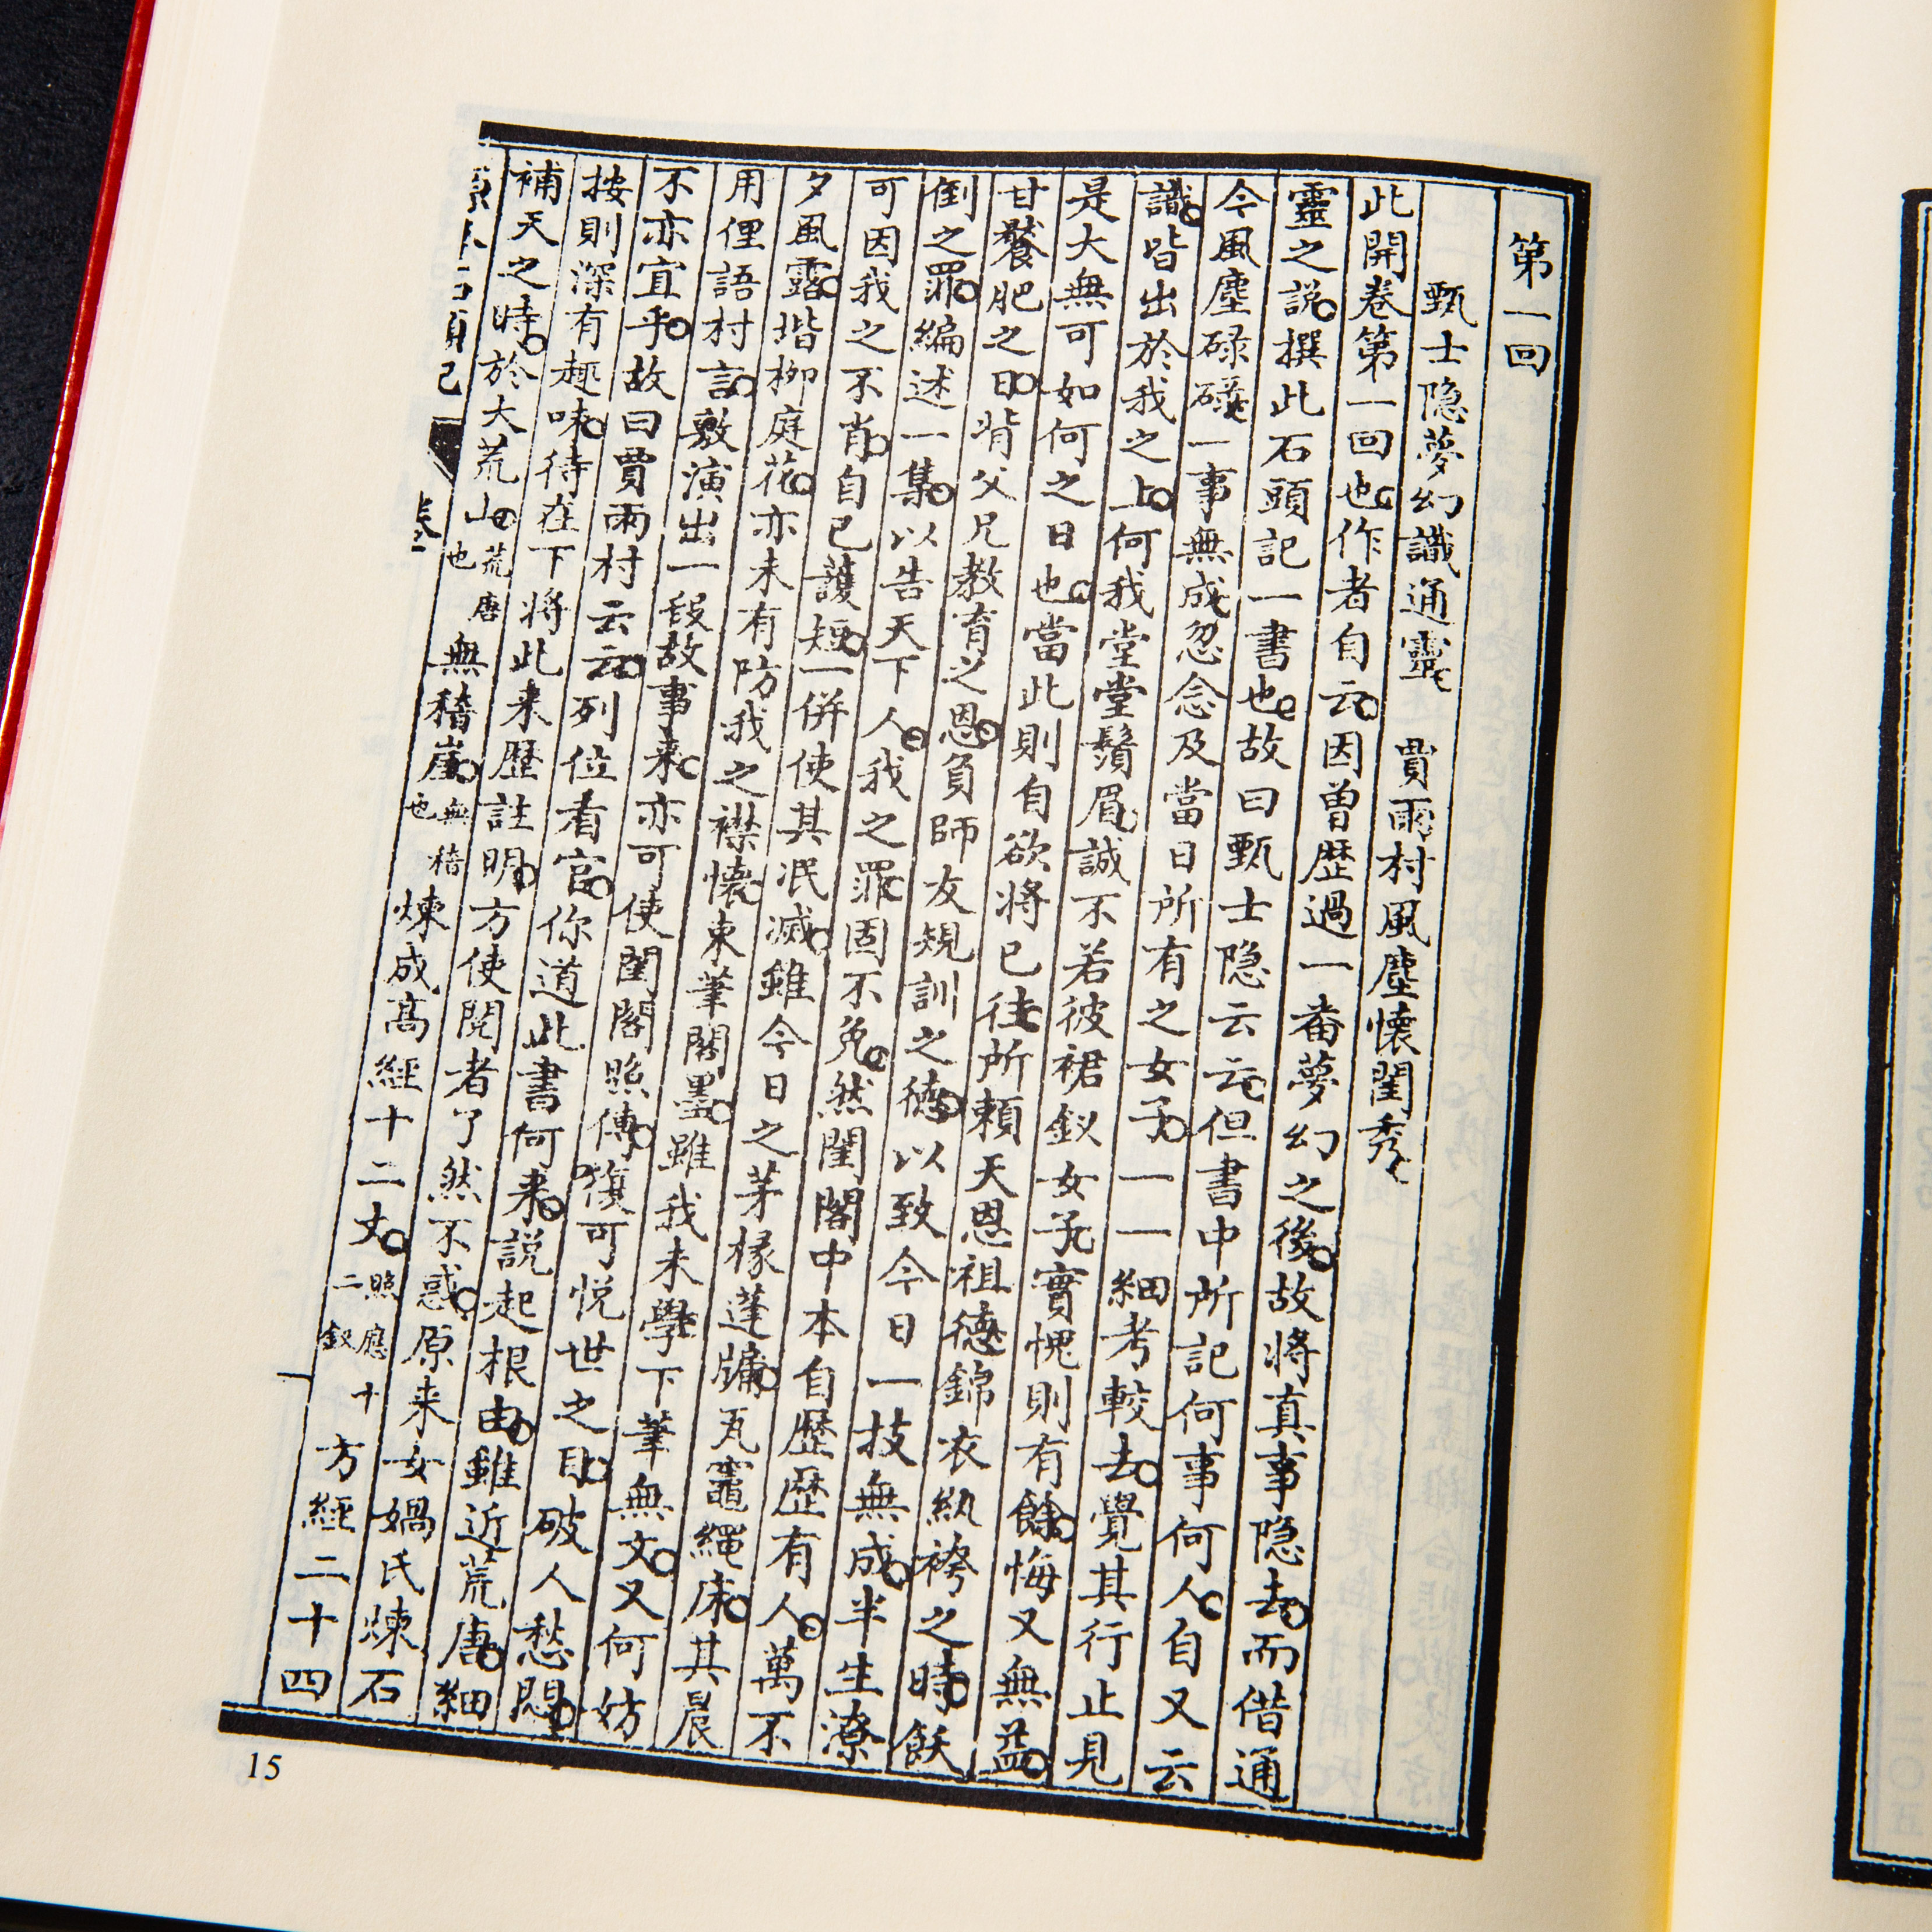 第一回
甄士隐夢幻識通靈　賈雨村風塵懷閨秀
此開卷第一回也作者自云因曾歴過一番夢幻之後故將真事隐去而借通
靈之説撰此石頭記一書也故曰甄士隐云云但書中所記何事何人自又云
今風塵碌碌一事無成忽念及當日所有之女子一一細考較去覺其行止見
識皆出於我之上何我堂堂鬚眉誠不若彼裙釵女子實愧則有餘悔又無益
是大無可如何之日也當此則自欲將已徃所頼天恩祖德錦衣紈袴之時飫
甘饜肥之日背父兄教育之恩負師友規訓之德以致今日一技無成半生潦
倒之罪編述一集以告天下人我之罪固不免然閨閣中本自歴歴有人萬不
可因我之不肖自已護短一併使其泯滅雖今日之茅椽蓬牖瓦竈繩床其晨
夕風露堦栁庭花亦未有防我之襟懷束筆閣墨雖我未學下筆無文又何妨
用俚語村言敷演出一段故事来亦可使閨閣照傳復可悦世之目破人愁悶
不亦宜乎故曰賈雨村云云列位看官你道此書何来説起根由雖近荒唐細
按則深有趣味待在下將此来歴註明方使閱者了然不惑原来女媧氏煉石
補天之時於大荒山荒唐也無稽崖無稽也煉成高經十二丈照應十二釵方經二十四
15